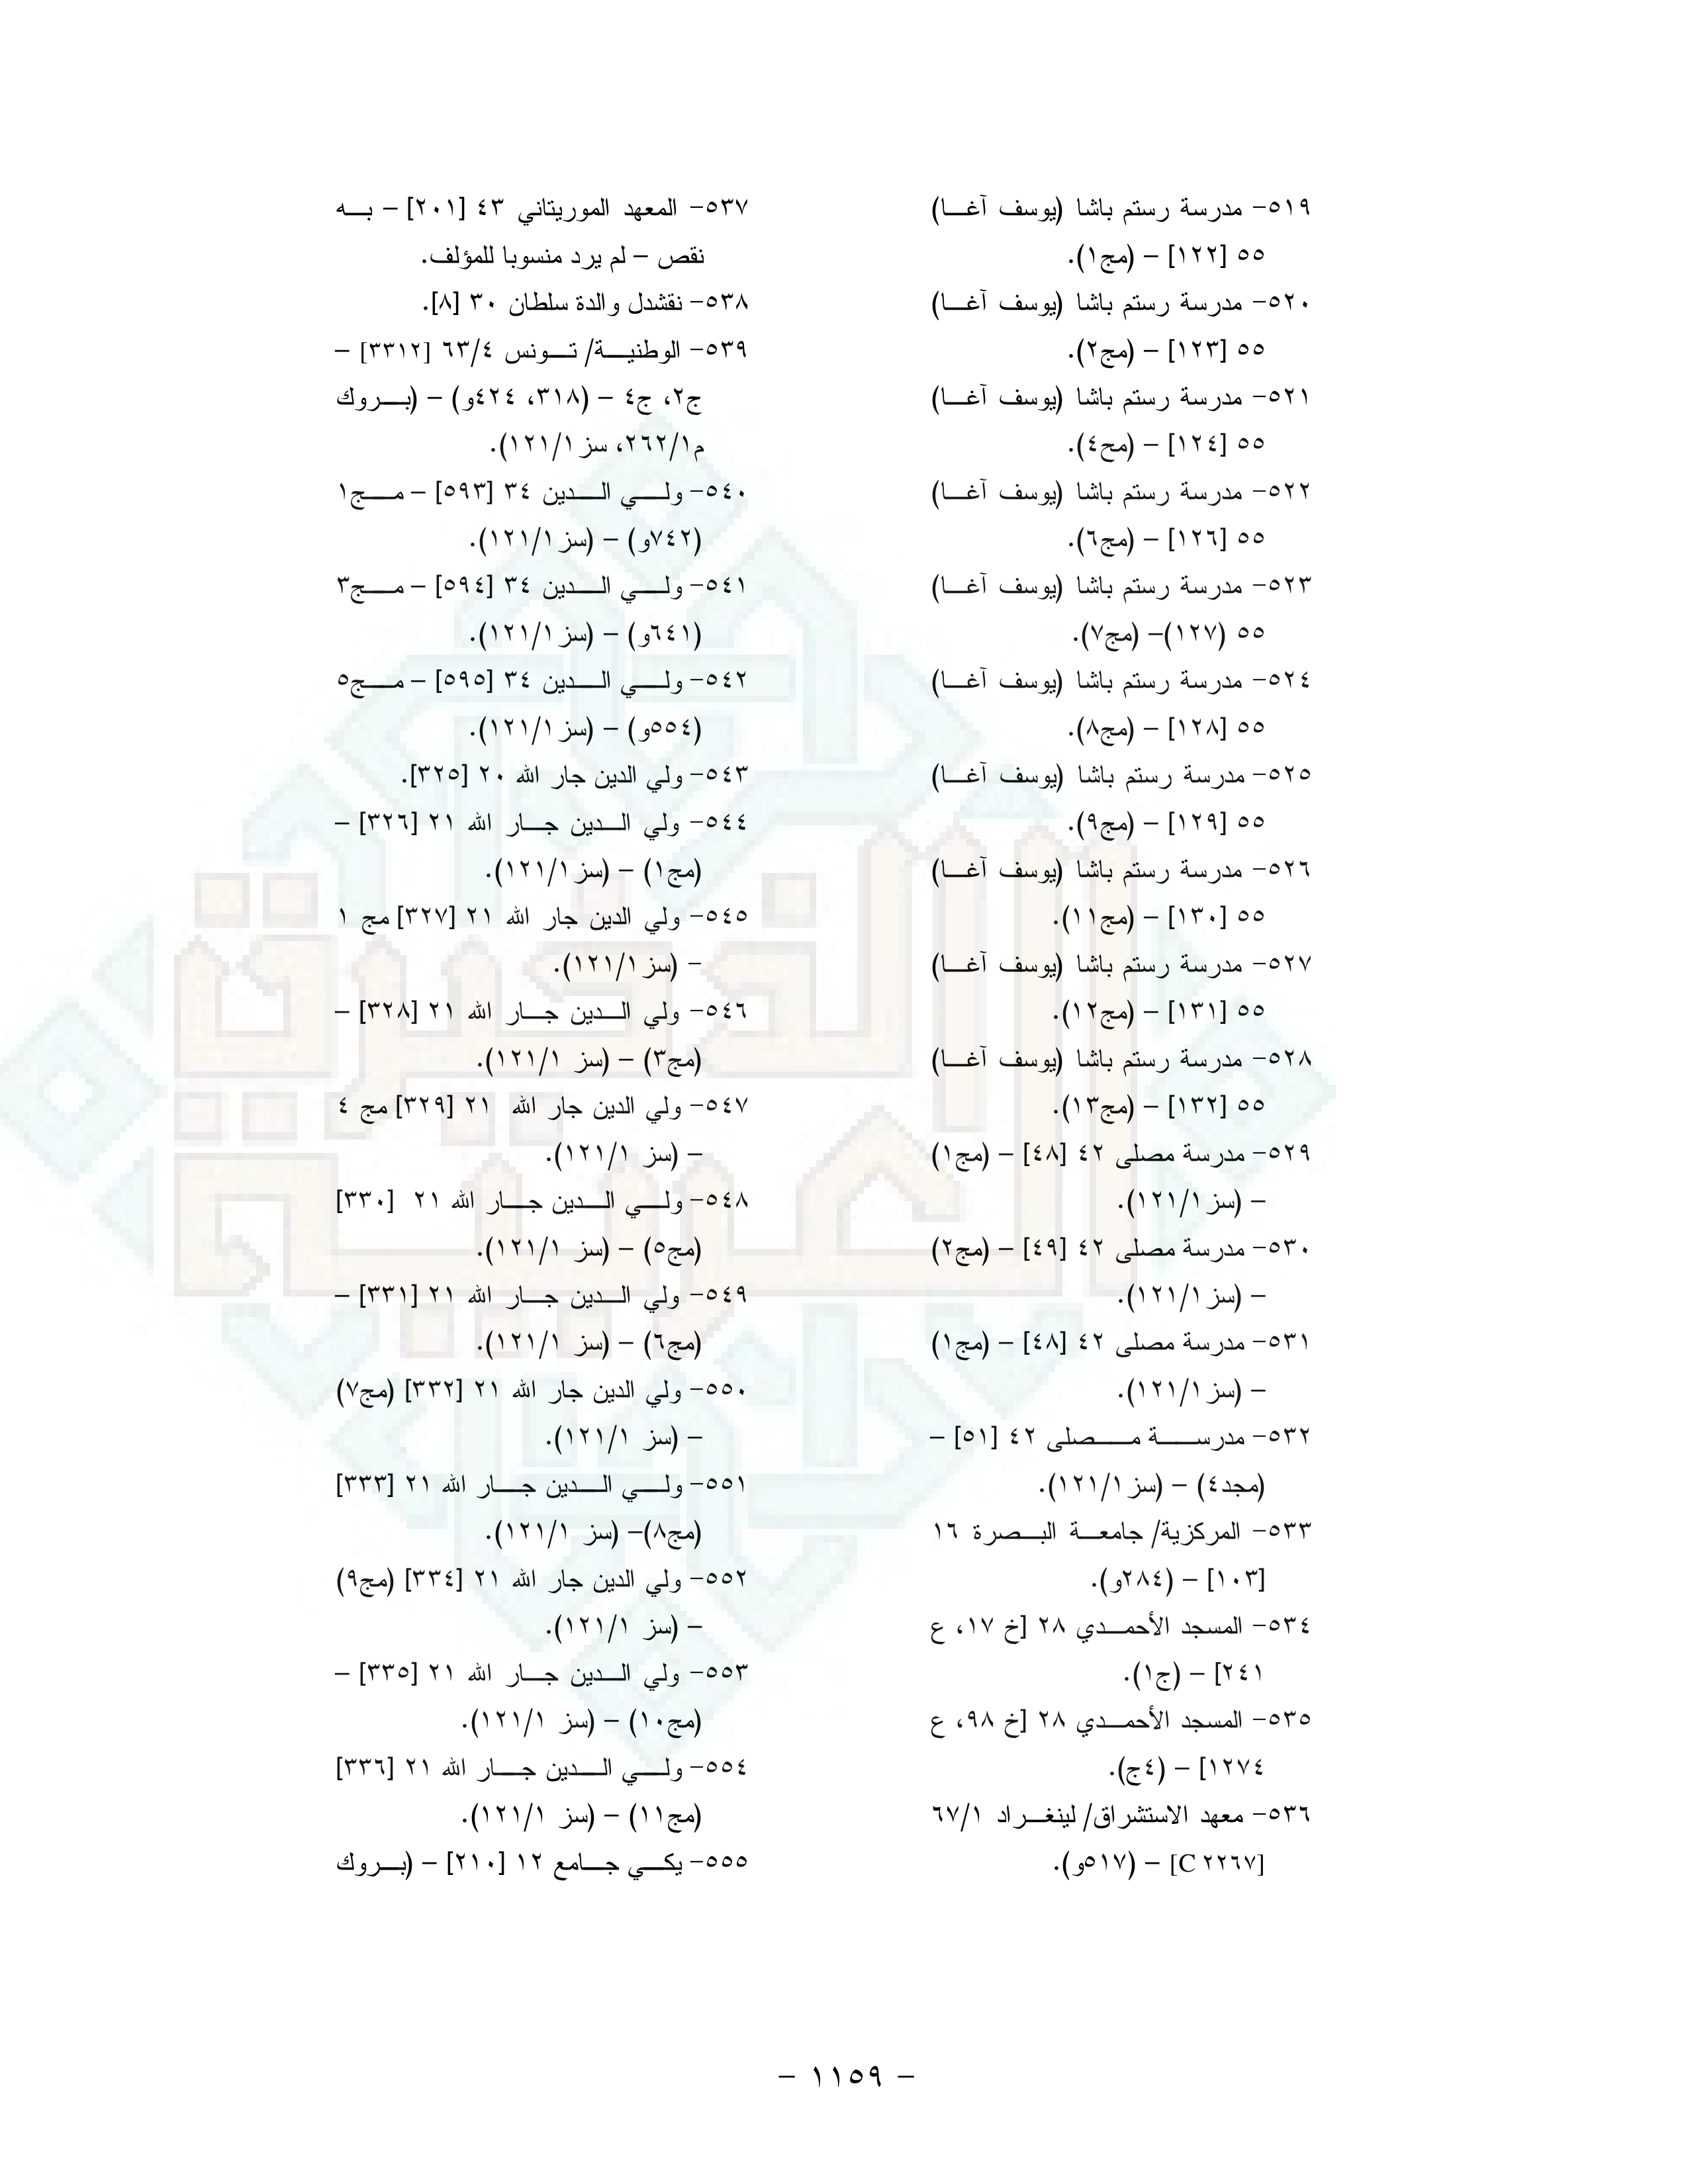 ٥١٩- مدرسة رستم باشا (يوسف آغا)
٥٥ [١٢٢] - (مج١).
٥٢٠- مدرسة رستم باشا (يوسف آغا)
٥٥ [١٢٣] - (مج٢).
٥٢١- مدرسة رستم باشا (يوسف آغا)
٥٥ [١٢٤] - (مح٤).
٥٢٢- مدرسة رستم باشا (يوسف آغا)
٥٥ [١٢٦] - (مج٦).
٥٢٣- مدرسة رستم باشا (يوسف آغا)
٥٥ (١٢٧)- (مج٧).
٥٢٤- مدرسة رستم باشا (يوسف آغا)
٥٥ [١٢٨] - (مج٨).
٥٢٥- مدرسة رستم باشا (يوسف آغا)
٥٥ [١٢٩] - (مج٩).
٥٢٦- مدرسة رستم باشا (يوسف آغا)
٥٥ [١٣٠] - (مج١١).
٥٢٧- مدرسة رستم باشا (يوسف آغا)
٥٥ [١٣١] - (مج١٢).
٥٢٨- مدرسة رستم باشا (يوسف آغا)
٥٥ [١٣٢] - (مج١٣).
٥٢٩- مدرسة مصلى ٤٢ [٤٨] - (مج١)
- (سز١٢١/١).
٥٣٠- مدرسة مصلى ٤٢ [٤٩] - (مج٢)
- (سز١٢١/١).
٥٣١- مدرسة مصلى ٤٢ [٤٨] - (مج١)
- (سز١٢١/١).
٥٣٢- مدرسة مصلى ٤٢ [٥١] -
(مجد٤) - (سز١٢١/١).
٥٣٣- المركزية/ جامعة البصرة ١٦
[١٠٣] - (٢٨٤و).
٥٣٤- المسجد الأحمدي ٢٨ [خ ١٧، ع
٢٤١] - (ج١).
٥٣٥- المسجد الأحمدي ٢٨ [خ ٩٨، ع
١٢٧٤] - (٤ج).
٥٣٦- معهد الاستشراق/ لينغراد ٦٧/١
[C ٢٢٦٧] - (٥١٧و).
٥٣٧- المعهد الموريتاني ٤٣ [٢٠١] - به
نقص - لم يرد منسوبا للمؤلف.
٥٣٨- نقشدل والدة سلطان ٣٠ [٨].
٥٣٩- الوطنية/ تونس ٦٣/٤ [٣٣١٢] -
ج٢، ج٤ - (٣١٨، ٤٢٤و) - (بروك
م٢٦٢/١، سز١٢١/١).
٥٤٠- ولي الدين ٣٤ [٥٩٣] - مج١
(٧٤٢و) - (سز١٢١/١).
٥٤١- ولي الدين ٣٤ [٥٩٤] - مج٣
(٦٤١و) - (سز١٢١/١).
٥٤٢- ولي الدين ٣٤ [٥٩٥] - مج٥
(٥٥٤و) - (سز١٢١/١).
٥٤٣- ولي الدين جار الله ٢٠ [٣٢٥].
٥٤٤- ولي الدين جار الله ٢١ [٣٢٦] -
(مج١) - (سز١٢١/١).
٥٤٥- ولي الدين جار الله ٢١ [٣٢٧] مج ١
- (سز١٢١/١).
٥٤٦- ولي الدين جار الله ٢١ [٣٢٨] -
(مج٣) - (سز ١٢١/١).
٥٤٧- ولي الدين جار الله ٢١ [٣٢٩] مج ٤
- (سز ١٢١/١).
٥٤٨- ولي الدين جار الله ٢١ [٣٣٠]
(مج٥) - (سز ١٢١/١).
٥٤٩- ولي الدين جار الله ٢١ [٣٣١] -
(مج٦) - (سز ١٢١/١).
٥٥٠- ولي الدين جار الله ٢١ [٣٣٢] (مج٧)
- (سز ١٢١/١).
٥٥١- ولي الدين جار الله ٢١ [٣٣٣]
(مج٨)- (سز ١٢١/١).
٥٥٢- ولي الدين جار الله ٢١ [٣٣٤] (مج٩)
- (سز ١٢١/١).
٥٥٣- ولي الدين جار الله ٢١ [٣٣٥] -
(مج١٠) - (سز ١٢١/١).
٥٥٤- ولي الدين جار الله ٢١ [٣٣٦]
(مج١١) - (سز ١٢١/١).
٥٥٥- يكي جامع ١٢ [٢١٠] - (بروك
- ١١٥٩ -
الذخيرة
العربية